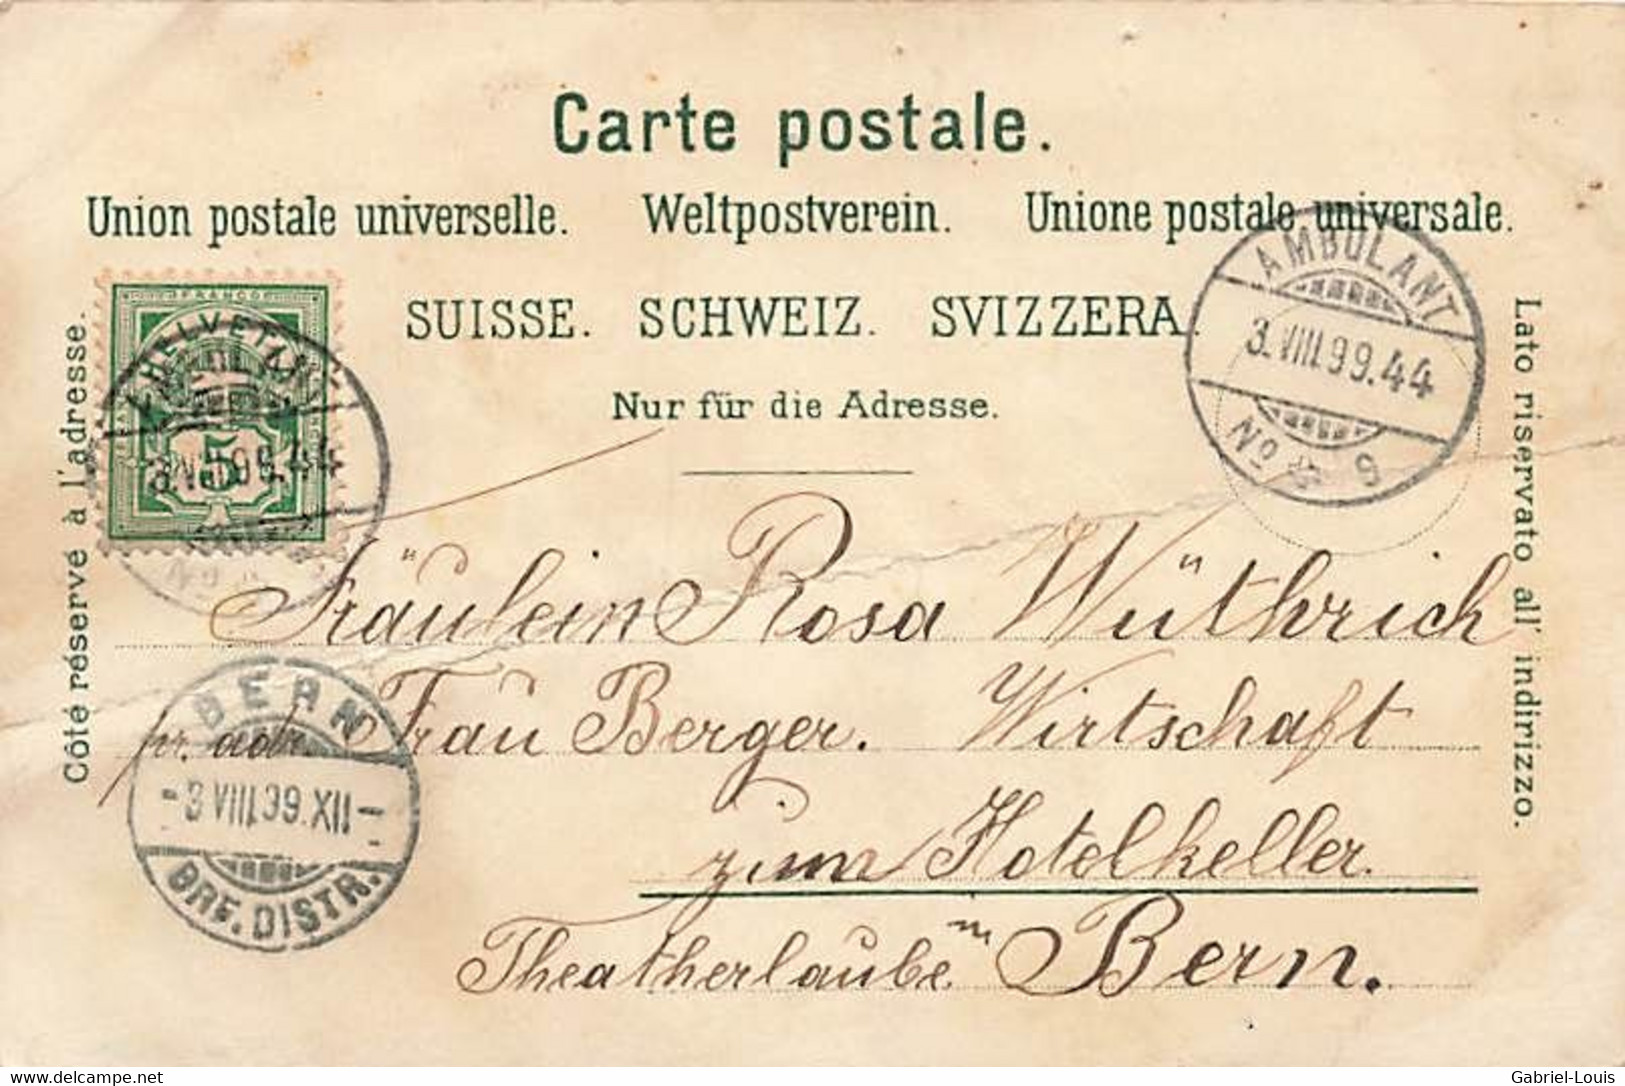 Carte postale.
Union postale universelle. Weltpostverein. Unione postale universale.
SUISSE. SCHWEIZ. SVIZZERA.
Nur für die Adresse.
Côté réservé à l'adresse.
Lato riservato all' indirizzo.
FRANCO
HELVETIA
5
AMBULANT
3.VIII.99.44
No 9
AMBULANT
3.VIII.99.44
No
Fräulein Rosa Wüthrich
pr. adr. Frau Berger. Wirtschaft
zum Hotelkeller.
Theatherlaube in Bern.
BERN
-3 VIII.99.XII-
BRF. DISTR.
delcampe.net
Gabriel-Louis